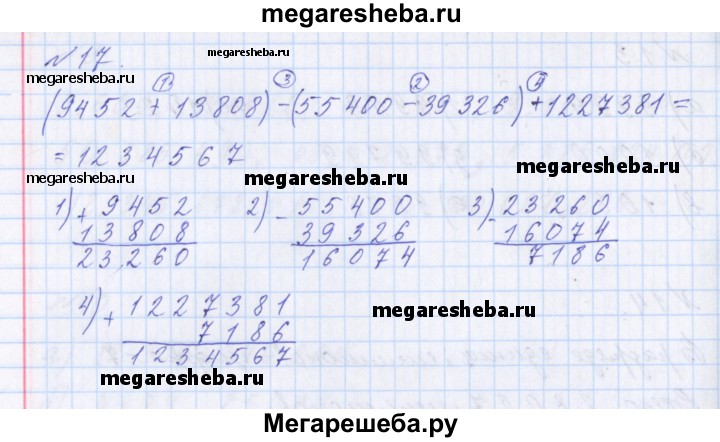 megaresheba.ru
№17.
megaresheba.ru
megaresheba.ru
1 3 2 4
(9452+13808)-(55400-39326)+1227381=
=1234567
megaresheba.ru
megaresheba.ru
1) + 9452
13808
23260
2) - 55400
39326
16074
3) - 23260
16074
7186
4) + 1227381
7186
1234567
megaresheba.ru
megaresheba.ru
Мегарешеба.ру